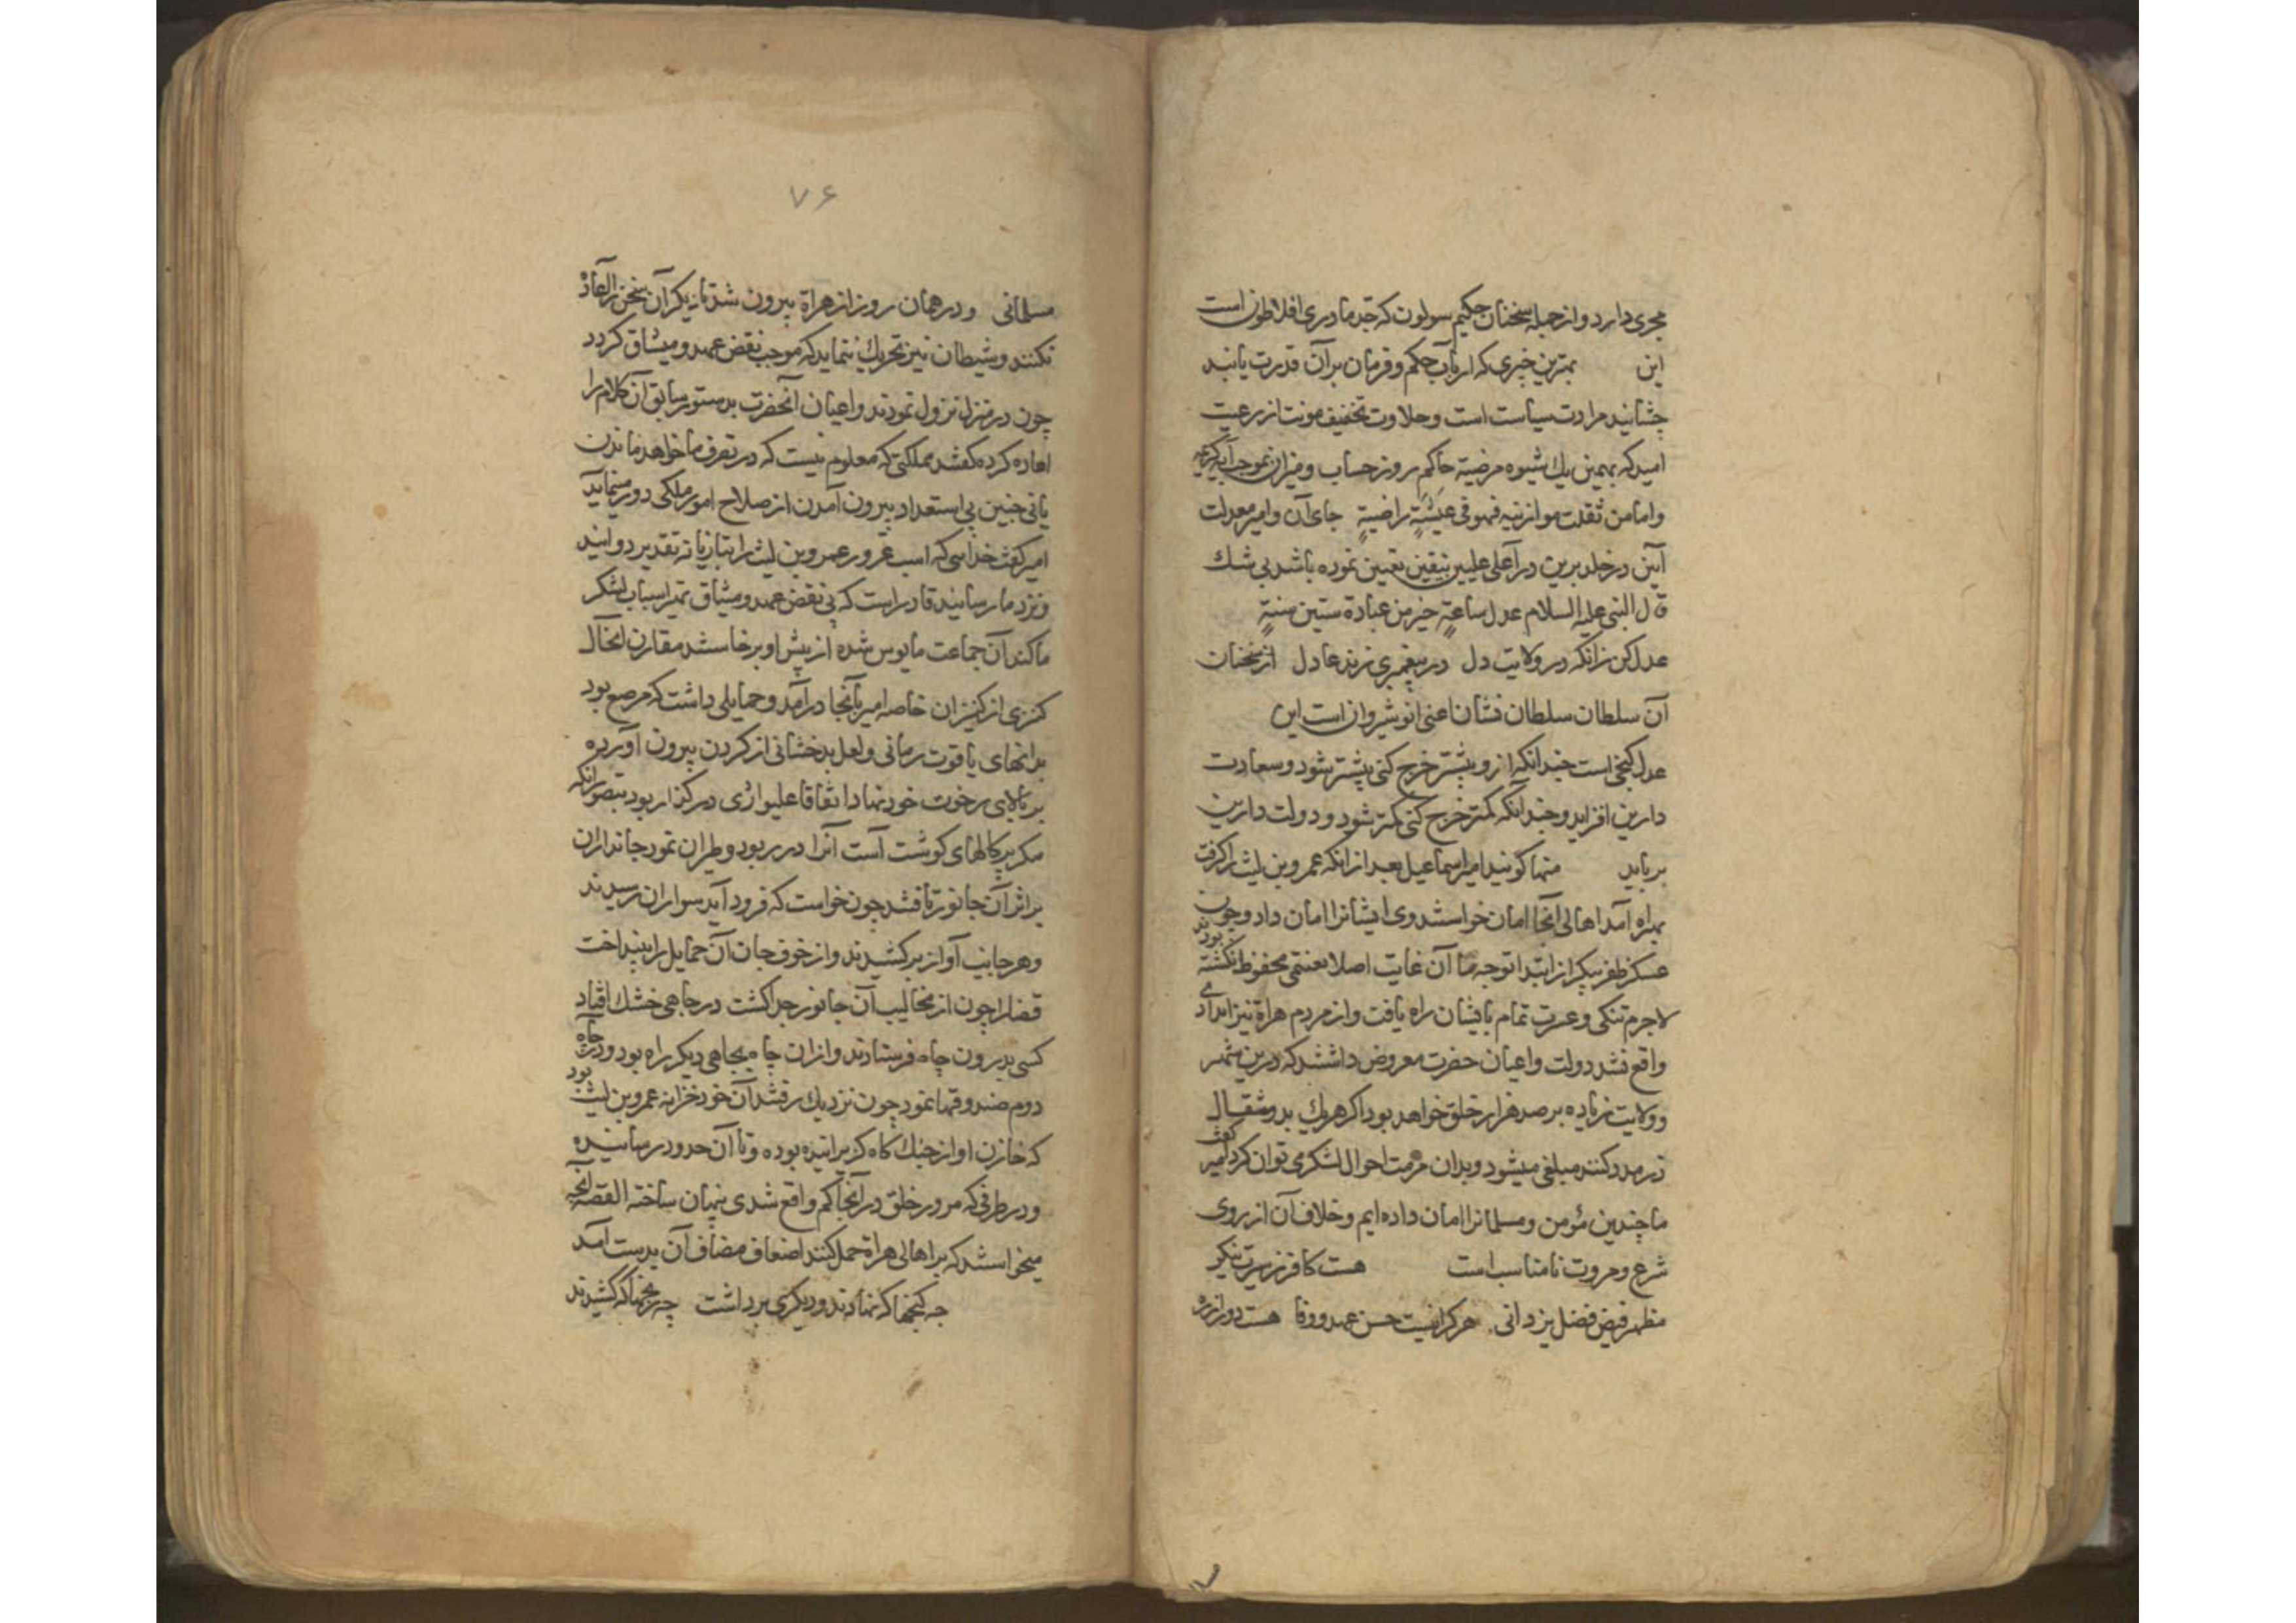 مجری دارد و از جمله سخنان حکیم سولون که جد مادری افلاطون است
این بهترین خبری که ارباب حکم و فرمان بر آن قدرت یابند
چشانیدن مرارت سیاست است و حلاوت تخفیف مونت از رعیت
امید که بهمین یک شیوه مرضیه حاکم روز حساب و میزان بموجب آیه کریمه
و اما من ثقلت موازنیه فهو فی عیشةٍ راضیةٍ جای آن و امیر معدلت
آیین در خلد برین در آعلی علیین بیقین تعیین نموده باشد بی شک
قال النبی علیه السلام عدل ساعةٍ خیر من عبادة ستین سنةٍ
عدل کن زانکه در ولایت دل در پیغمبری زند عادل از سخنان
آن سلطان سلطان نشان اعنی انوشیروان است این
عدل کنجی است چندانکه ازو بیشتر خرج کنی بیشتر شود و سعادت
دارین افزاید و چندانکه کمتر خرج کنی کمتر شود و دولت دارین
برباید منها کویند امیر اسماعیل بعد از انکه عمرو بن لیث را کرفت
بهراه آمد اهالی آنجا امان خواستند وی ایشانرا امان داد و چون
عسکر ظفر پیکر از ابتدا توجه تا آن غایت اصلا بغنتمی محفوظ نکشته بودند
لاجرم تنکی و عسرت تمام بایشان راه یافت و از مردم هراة نیز امدادی
واقع نشد دولت و اعیان حضرت معروض داشتند که درین شهر
و ولایت زیاده بر صد هزار خلق خواهد بود اکر هریک بدو مثقال
زر مدد کنند مبلغی میشود و بدان مرمت احوال لشکر می توان کرد امیر کفت
ما چندین مؤمن و مسلمانرا امان داده ایم و خلاف آن از روی
شرع و مروت نا مناسب است هست کافر ز سیرت نیکو
مظهر فیض فضل یزدانی هرکرا نیست حسن عهد و وفا هست دور از ره
۷۶
مسلمانی و در همان روز از هراة بیرون شد تا دیکر آن سخن را اعاده
نکنند و شیطان نیز تحریک ننماید که موجب نقض عهد و میثاق کردد
چون در منزل نزول نمودند و اعیان آنحضرت بدستور سابق آن کلام را
اعاده کرده کفتند مملکتی که معلوم نیست که در تصرف ما خواهد ماند
یا نی چنین بی استعداد بیرون آمدن از صلاح امور ملکی دور مینماید
امیر کفت خدایی که اسب غرور عمرو بن لیث را بتازیانه تقدیر دوانید
و نزد ما رسانید قادر است که بی نقض عهد و میثاق تهیر اسباب لشکر
ما کند آن جماعت مایوس شده از پیش او برخاستند مقارن انحال
کنزی از کنیزان خاصه امیر بآنجا درآمد و حمایلی داشت که مرصع بود
بدانهای یاقوت رمانی و لعل بدخشانی از کردن بیرون آورده
بر بالای رخوت خود نهاد اتفاقا علیوازی در کذار بود بتصور آنکه
مکر پرکالهای کوشت آست آنرا در ربود و طیران نمود جانداران
بر اثر آن جانور تافتند چون خواست که فرود آید سواران رسیدند
و هر جانب آواز برکشیدند و از خوف جان آن حمایل را بینداخت
قضا را چون از مخالیب آن جانور جدا کشت در چاهی خشک افتاد
کسی بدرون چاه فرستادند و از ان چاه بچاهی دیکر راه بود و در چاه
دوم صندوقها نمود چون نزدیک رفتند آن خود خزانه عمرو بن لیث بود
که خازن او از جنک کاه کریزانیده بوده و تا آن حدود رسانیده
و در طرفی که مرور خلق در آنجا کم واقع شدی پنهان ساخته القصه آنچه
میخواستند که بر اهالی هراة حمل کنند اضعاف مضاف آن بدست آمد
چه کنجها که نهادند و دیکری برداشت چه رنجها که کشیدند